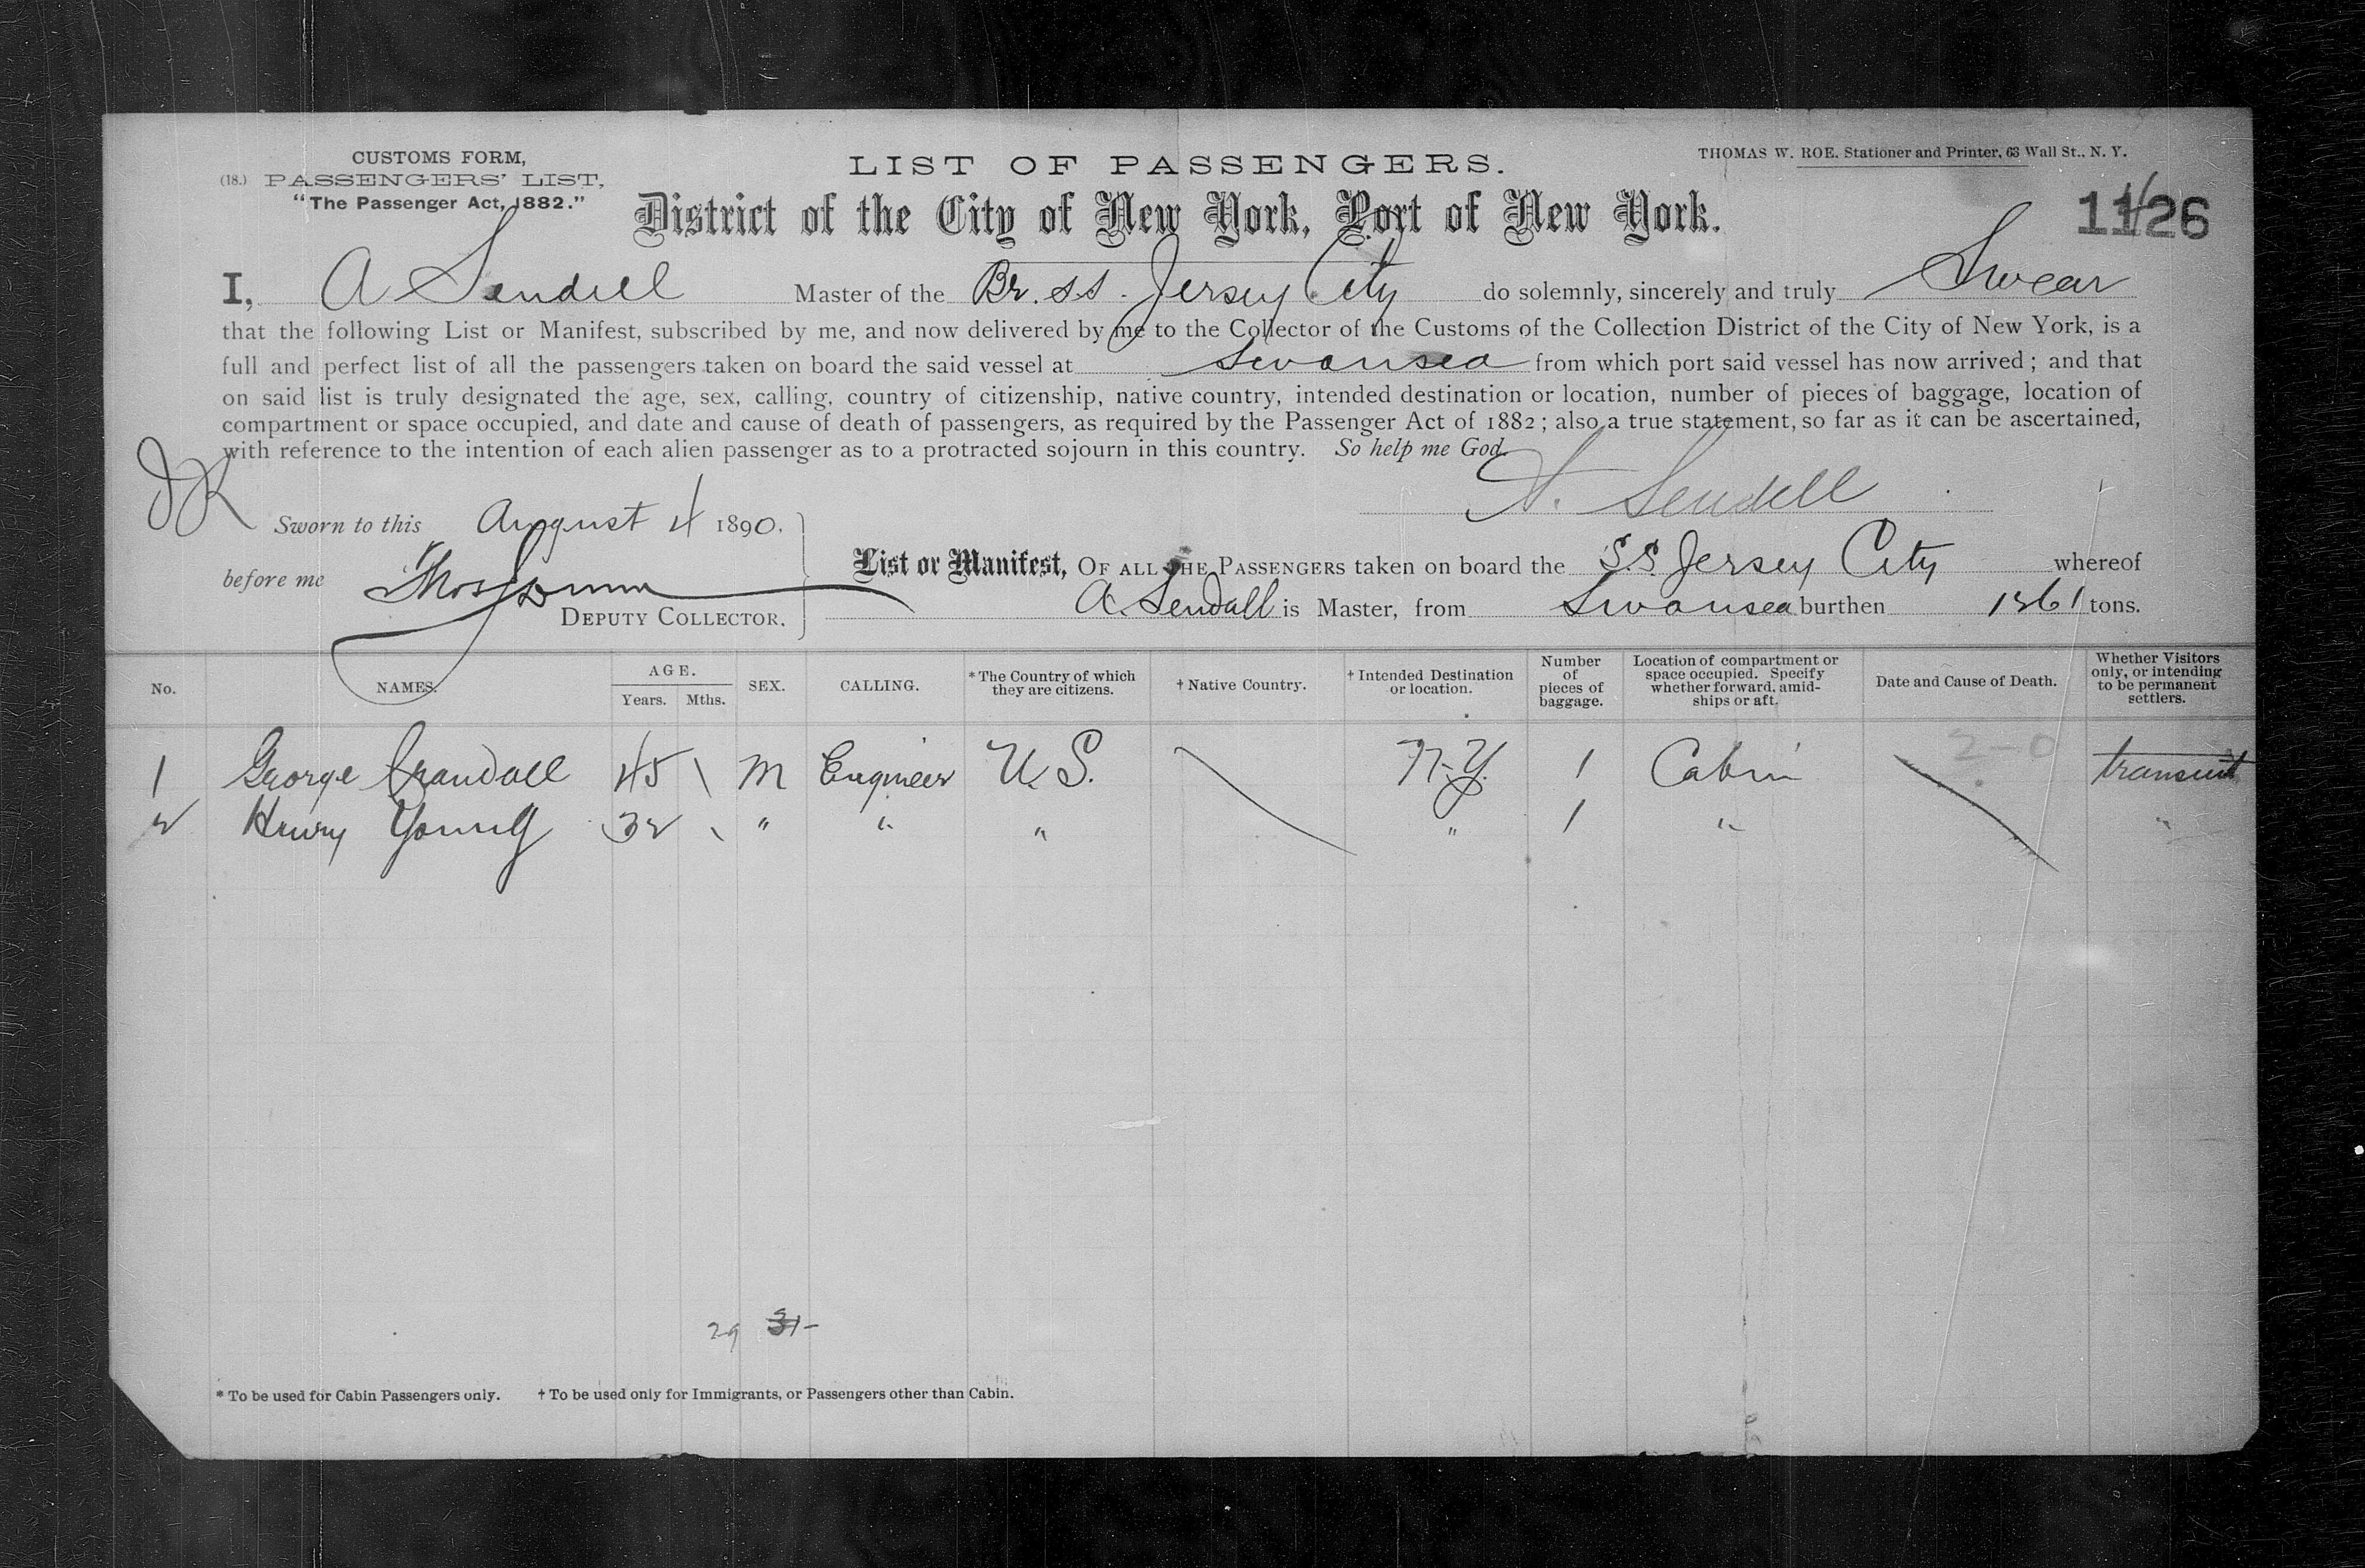 CUSTOMS FORM,
(18.) PASSENGERS' LIST,
"The Passenger Act, 1882."
LIST OF PASSENGERS.
THOMAS W. ROE. Stationer and Printer, 63 Wall St., N. Y.
District of the City of New York, Port of New York.
1126
I, A Sendell Master of the Br. SS. Jersey City do solemnly, sincerely and truly Swear
that the following List or Manifest, subscribed by me, and now delivered by me to the Collector of the Customs of the Collection District of the City of New York, is a
full and perfect list of all the passengers taken on board the said vessel at Swansea from which port said vessel has now arrived; and that
on said list is truly designated the age, sex, calling, country of citizenship, native country, intended destination or location, number of pieces of baggage, location of
compartment or space occupied, and date and cause of death of passengers, as required by the Passenger Act of 1882; also a true statement, so far as it can be ascertained,
with reference to the intention of each alien passenger as to a protracted sojourn in this country. So help me God.
A. Sendell
Sworn to this August 4 1890.
before me
DEPUTY COLLECTOR.
List or Manifest, OF ALL THE PASSENGERS taken on board the S.S. Jersey City whereof
A. Sendall is Master, from Swansea burthen 1861 tons.
No. NAMES. AGE. Years. Mths. SEX. CALLING. * The Country of which they are citizens. † Native Country. † Intended Destination or location. Number of pieces of baggage. Location of compartment or space occupied. Specify whether forward, amidships or aft. Date and Cause of Death. Whether Visitors only, or intending to be permanent settlers.
2-0
1 George Crandall 45 \ M Engineer U.S. N.Y. 1 Cabin transient
2 Henry Young 32 \ " " " " 1 " "
29 31-
* To be used for Cabin Passengers only. † To be used only for Immigrants, or Passengers other than Cabin.